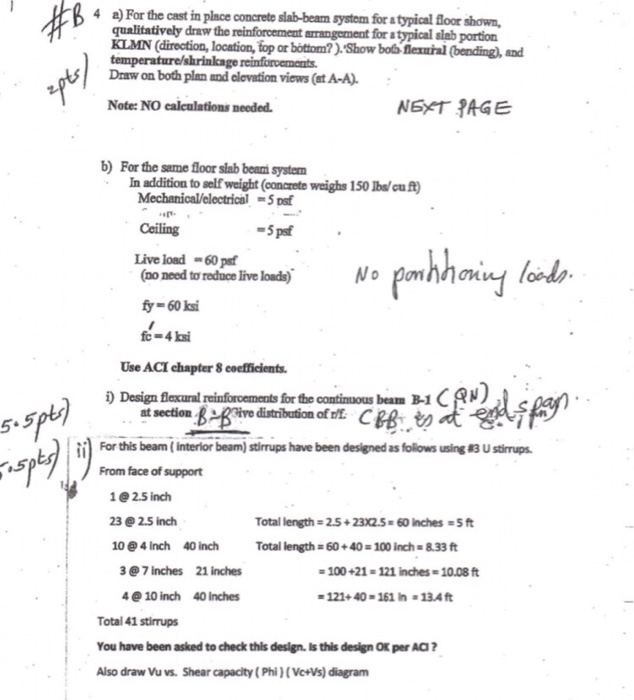 #B 4 a) For the cast in place concrete slab-beam system for a typical floor shown,
qualitatively draw the reinforcement arrangement for a typical slab portion
KLMN (direction, location, top or bottom? ). Show both flexural (bending), and
temperature/shrinkage reinforcements.
2pts)
Draw on both plan and elevation views (at A-A).
Note: NO calculations needed.
NEXT PAGE
b) For the same floor slab beam system
In addition to self weight (concrete weighs 150 lbs/ cu ft)
Mechanical/electrical = 5 psf
Ceiling = 5 psf
Live load = 60 psf
(no need to reduce live loads)
No partitioning loads.
fy = 60 ksi
f'c = 4 ksi
Use ACI chapter 8 coefficients.
i) Design flexural reinforcements for the continuous beam B-1 (QN)
at section B-B Give distribution of r/f. (BB is at end span.
5.5pts)
5.5pts) ii) For this beam ( interior beam) stirrups have been designed as follows using #3 U stirrups.
From face of support
1 @ 2.5 inch
23 @ 2.5 inch Total length = 2.5 + 23X2.5 = 60 inches = 5 ft
10 @ 4 inch 40 inch Total length = 60 + 40 = 100 inch = 8.33 ft
3 @ 7 inches 21 inches = 100 +21 = 121 inches = 10.08 ft
4 @ 10 inch 40 inches = 121+ 40 = 161 in = 13.4 ft
Total 41 stirrups
You have been asked to check this design. Is this design OK per ACI ?
Also draw Vu vs. Shear capacity ( Phi ) ( Vc+Vs) diagram